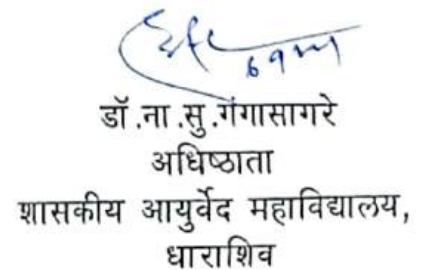 डॉ.ना.सु.गंगासागरे
अधिष्ठाता
शासकीय आयुर्वेद महाविद्यालय,
धाराशिव